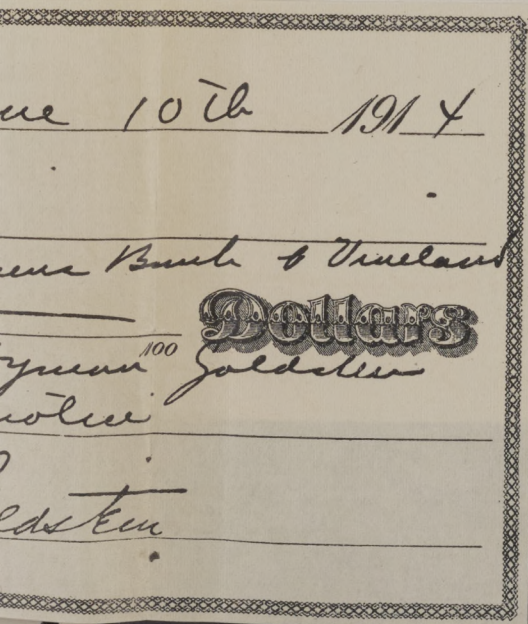 ne 10th 1914
ens Bank of Vineland
Dollars
100
yman Goldstein
ldstein